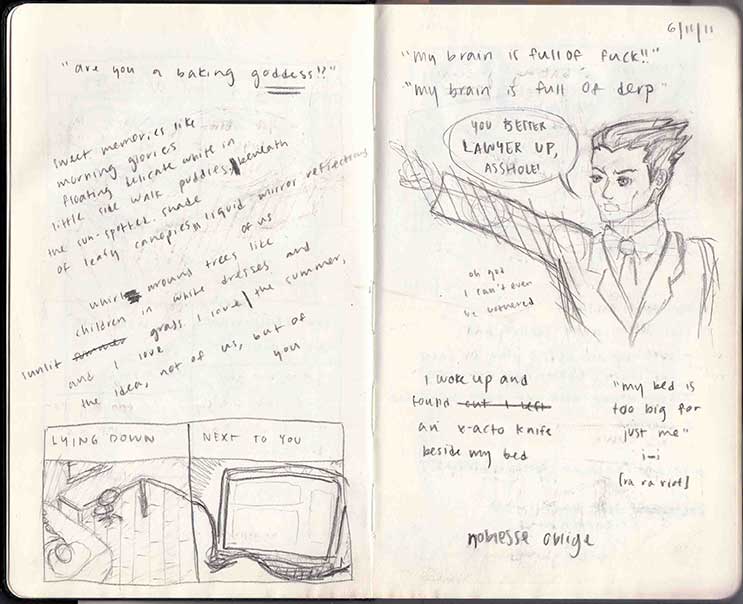 "are you a baking goddess!?"
sweet memories like
morning glories
floating delicate white in
little side walk puddles, beneath
the sun-spotted shade
of leafy canopies, liquid mirror reflections
of us
whirl around trees like
children in white dresses and
sunlit summer grass. I love the summer,
and I love
the idea, not of us, but of
you
LYING DOWN
NEXT TO YOU
6/11/11
"my brain is full of fuck!!"
"my brain is full of derp"
YOU BETTER
LAWYER UP,
ASSHOLE!
oh god
I can't even
be bothered
I woke up and
found cut I left
an x-acto knife
beside my bed
"my bed is
too big for
just me"
i-i
[ra ra riot]
noblesse oblige